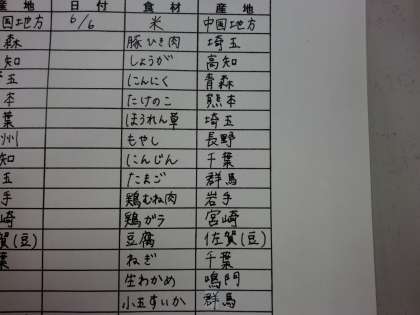 産地 日付 食材 産地
国地方 6/6 米 中国地方
森 豚ひき肉 埼玉
知 しょうが 高知
玉 にんにく 青森
本 たけのこ 熊本
葉 ほうれん草 埼玉
州 もやし 長野
知 にんじん 千葉
玉 たまご 群馬
手 鶏むね肉 岩手
崎 鶏ガラ 宮崎
賀(豆) 豆腐 佐賀(豆)
葉 ねぎ 千葉
生わかめ 鳴門
小玉すいか 群馬